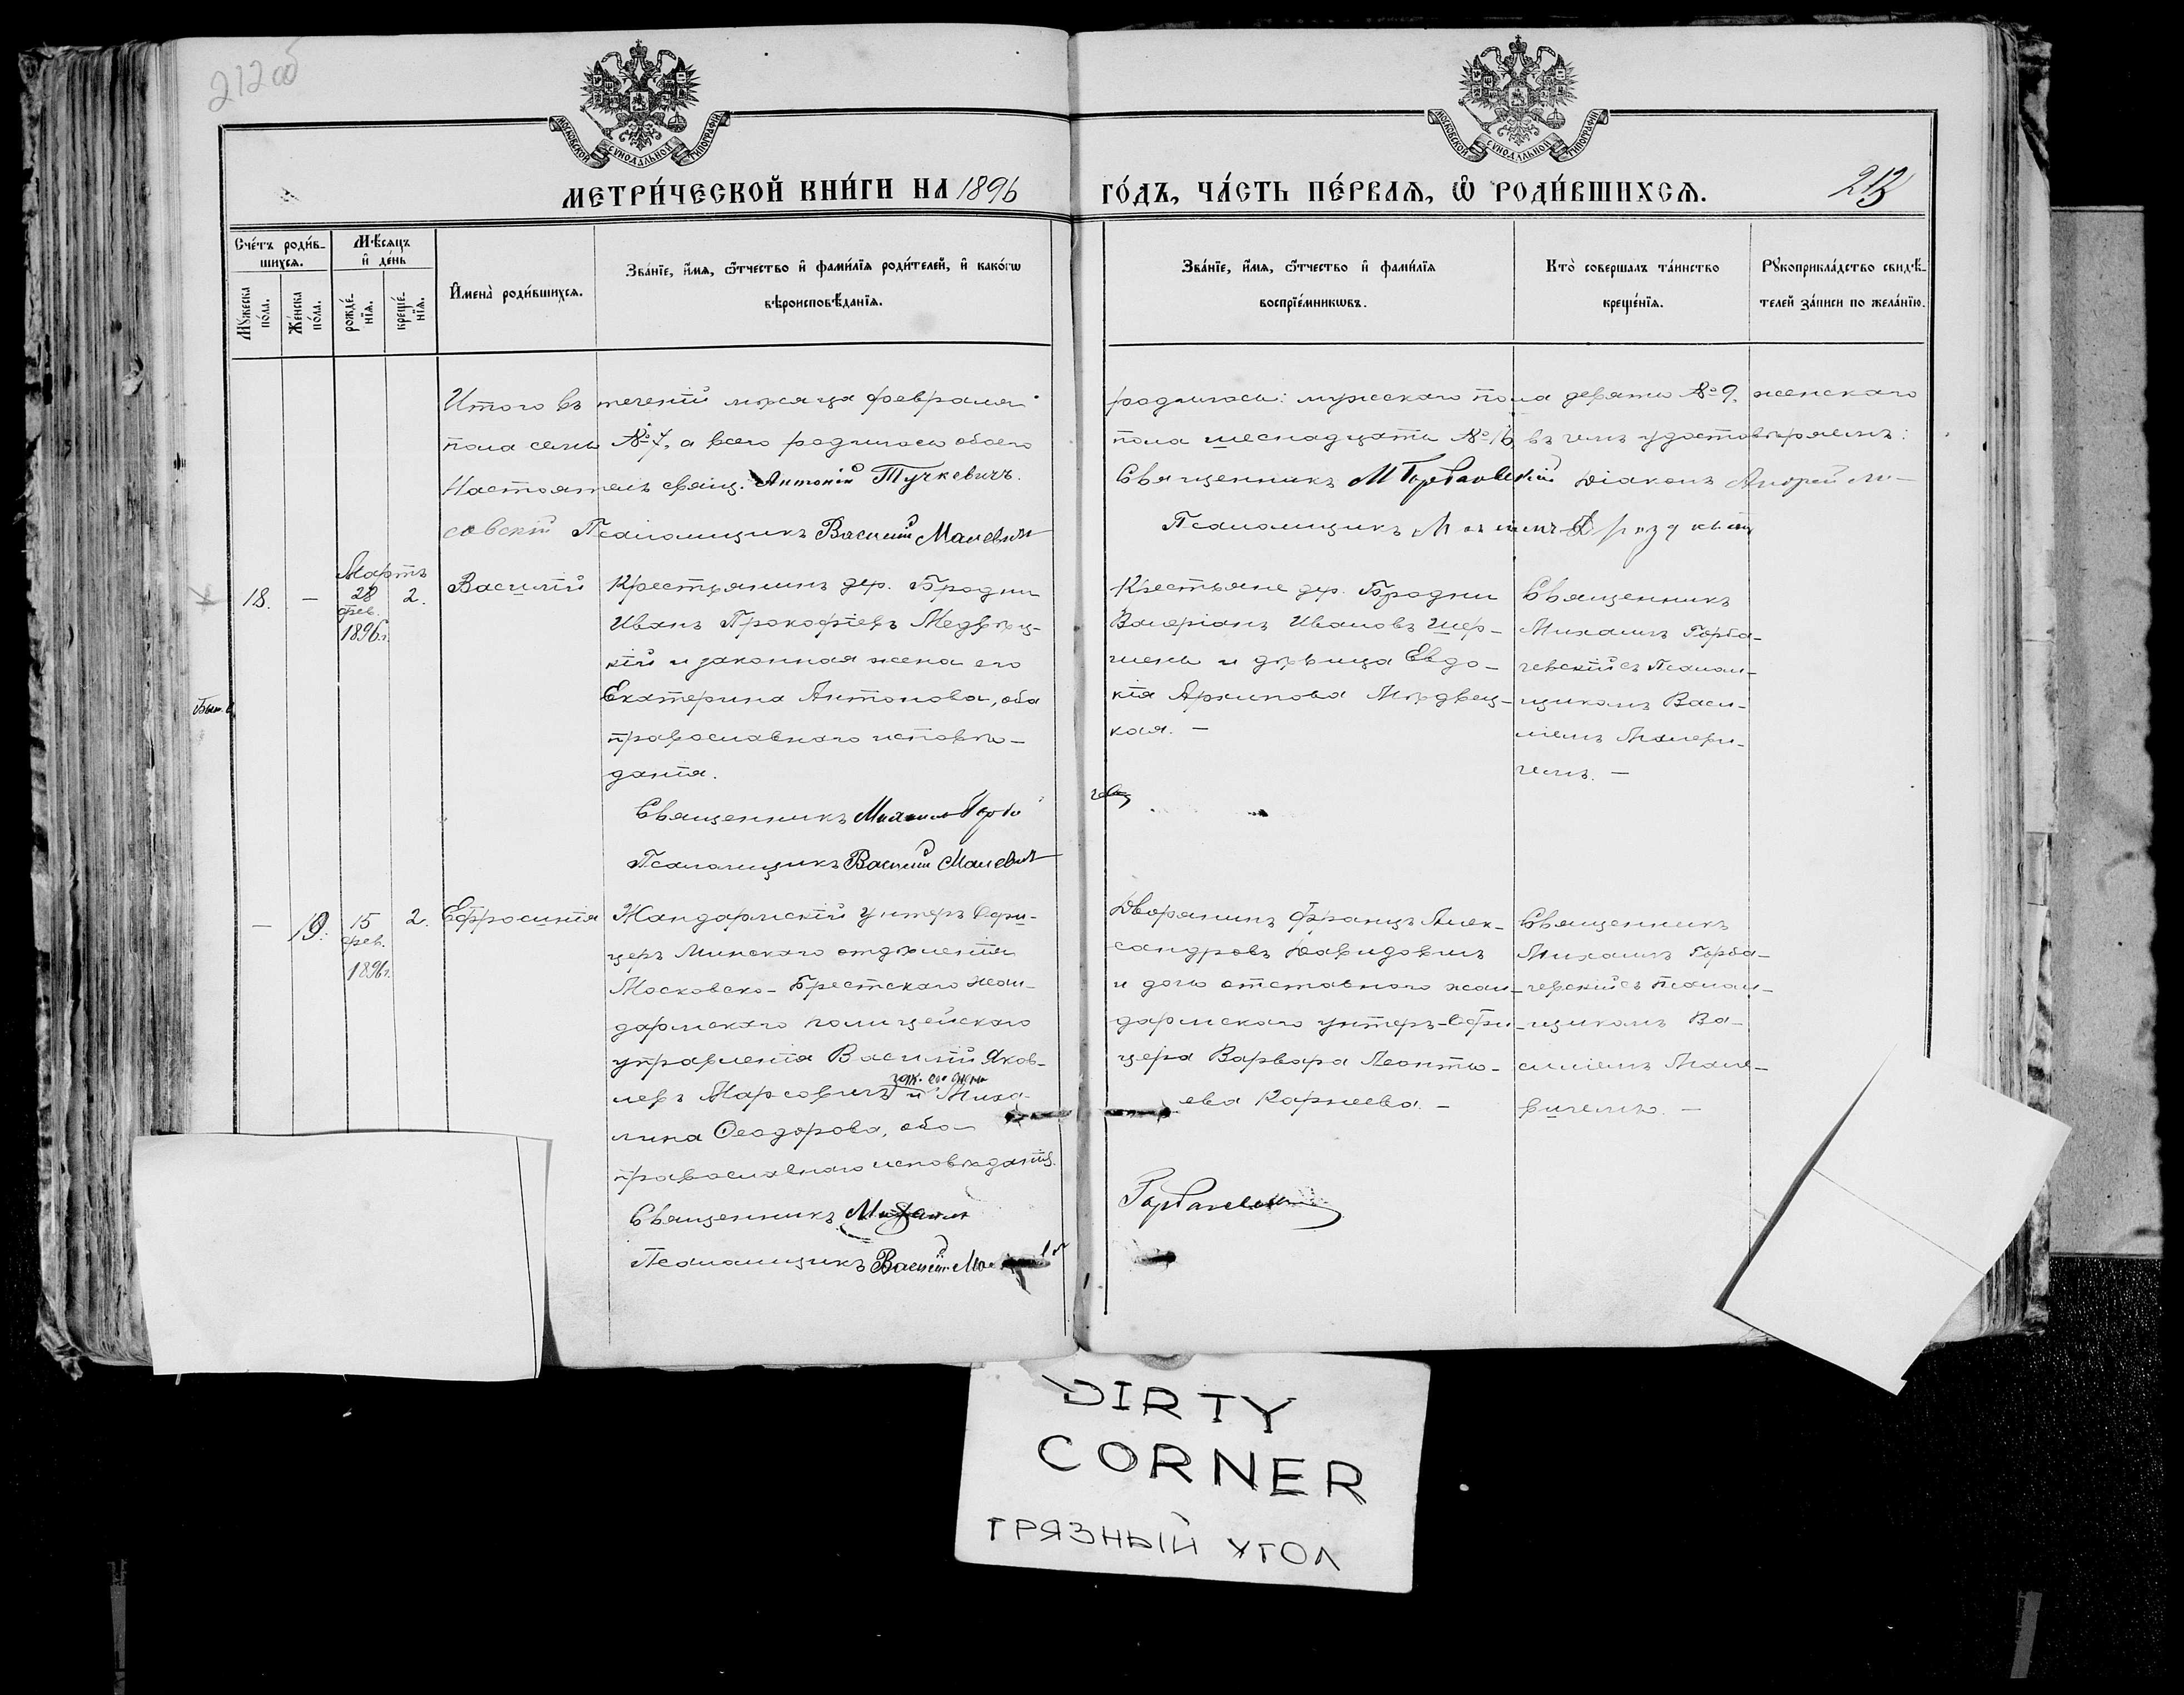 212 об
МОСКОВСКОЙ СУНОДАЛЬНОЙ ТИПОГРАФІИ
МОСКОВСКОЙ СУНОДАЛЬНОЙ ТИПОГРАФІИ
МЕТРИ́ЧЕСКОЙ КНИ́ГИ НА 1896
ГО́ДЪ, ЧА́СТЬ ПЕ́РВАѦ, Ѡ РОДИ́ВШИХСѦ.
213
Сче́тъ роди́в-
шихсѧ.
Мꙋ́жеска
по́ла.
Же́нска
по́ла.
Мѣ́сѧцъ
и҆ де́нь
рожде́-
нїѧ.
креще́-
нїѧ.
И҆мена̀ роди́вшихсѧ.
Зва́нїе, и҆́мѧ, ѻ҆́тчество и҆ фами́лїѧ роди́телей, и҆ како́гѡ
вѣроисповѣ́данїѧ.
Зва́нїе, и҆́мѧ, ѻ҆́тчество и҆ фами́лїѧ
воспрїе́мникѡвъ.
Кто̀ соверша́лъ та́инство
креще́нїѧ.
Рꙋкоприкла́дство свидѣ́-
телей за́писи по жела́нїю.
Итого въ теченіи мѣсяца февраля
родилось: мужескаго пола девять № 9. женскаго
пола семь № 7, а всего родилось обоего
пола шеснадцать № 16, въ чемъ удостовѣряемъ:
Настоятель свящ. Антоній Тучкевичъ.
Священникъ М Горбачевскій Діаконъ Андрей Ли-
совскій Псаломщикъ Василій Малевичъ
Псаломщикъ
Мартъ
18.
—
28
фев.
1896 г.
2.
Василій
Крестьянинъ дер. Бродни
Иванъ Прокофіевъ Медвѣц-
кій и законная жена его
Екатерина Антонова, оба
православнаго исповѣ-
данія.
Священникъ Михаилъ Горба
Псаломщикъ Василій Малевичъ
Крестьяне дер. Бродни
Валеріанъ Ивановъ Шер-
шень и дѣвица Евдо-
кія Архипова Мѣдвец-
кая. —
Священникъ
Михаилъ Горба-
чевскій съ Псалом-
щикомъ Васи-
ліемъ Малеви-
чемъ. —
—
19.
15
фев.
1896 г.
2.
Ефросинія
Жандармскій унтеръ Офи-
церъ Минскаго отдѣленія
Московско-Брестскаго жан-
дармскаго полицейскаго
управленія Василій Яков-
зак. его жена
левъ Марковичъ и Миха-
лина Ѳеодорова, оба
православнаго исповѣданія.
Священникъ Михаилъ
Псаломщикъ Василій
Дворянинъ Францъ Алек-
сандровъ Давидовичъ
и дочь отставнаго жан-
дармскаго унтеръ-Офи-
цера Варвара Леонтье-
ева Карнеева. —
Горбачевскій
Священникъ
Михаилъ Горба-
чевскій съ Псалом-
щикомъ Ва-
силіемъ Мале-
вичемъ. —
DIRTY
CORNER
ГРЯЗНЫЙ УГОЛ